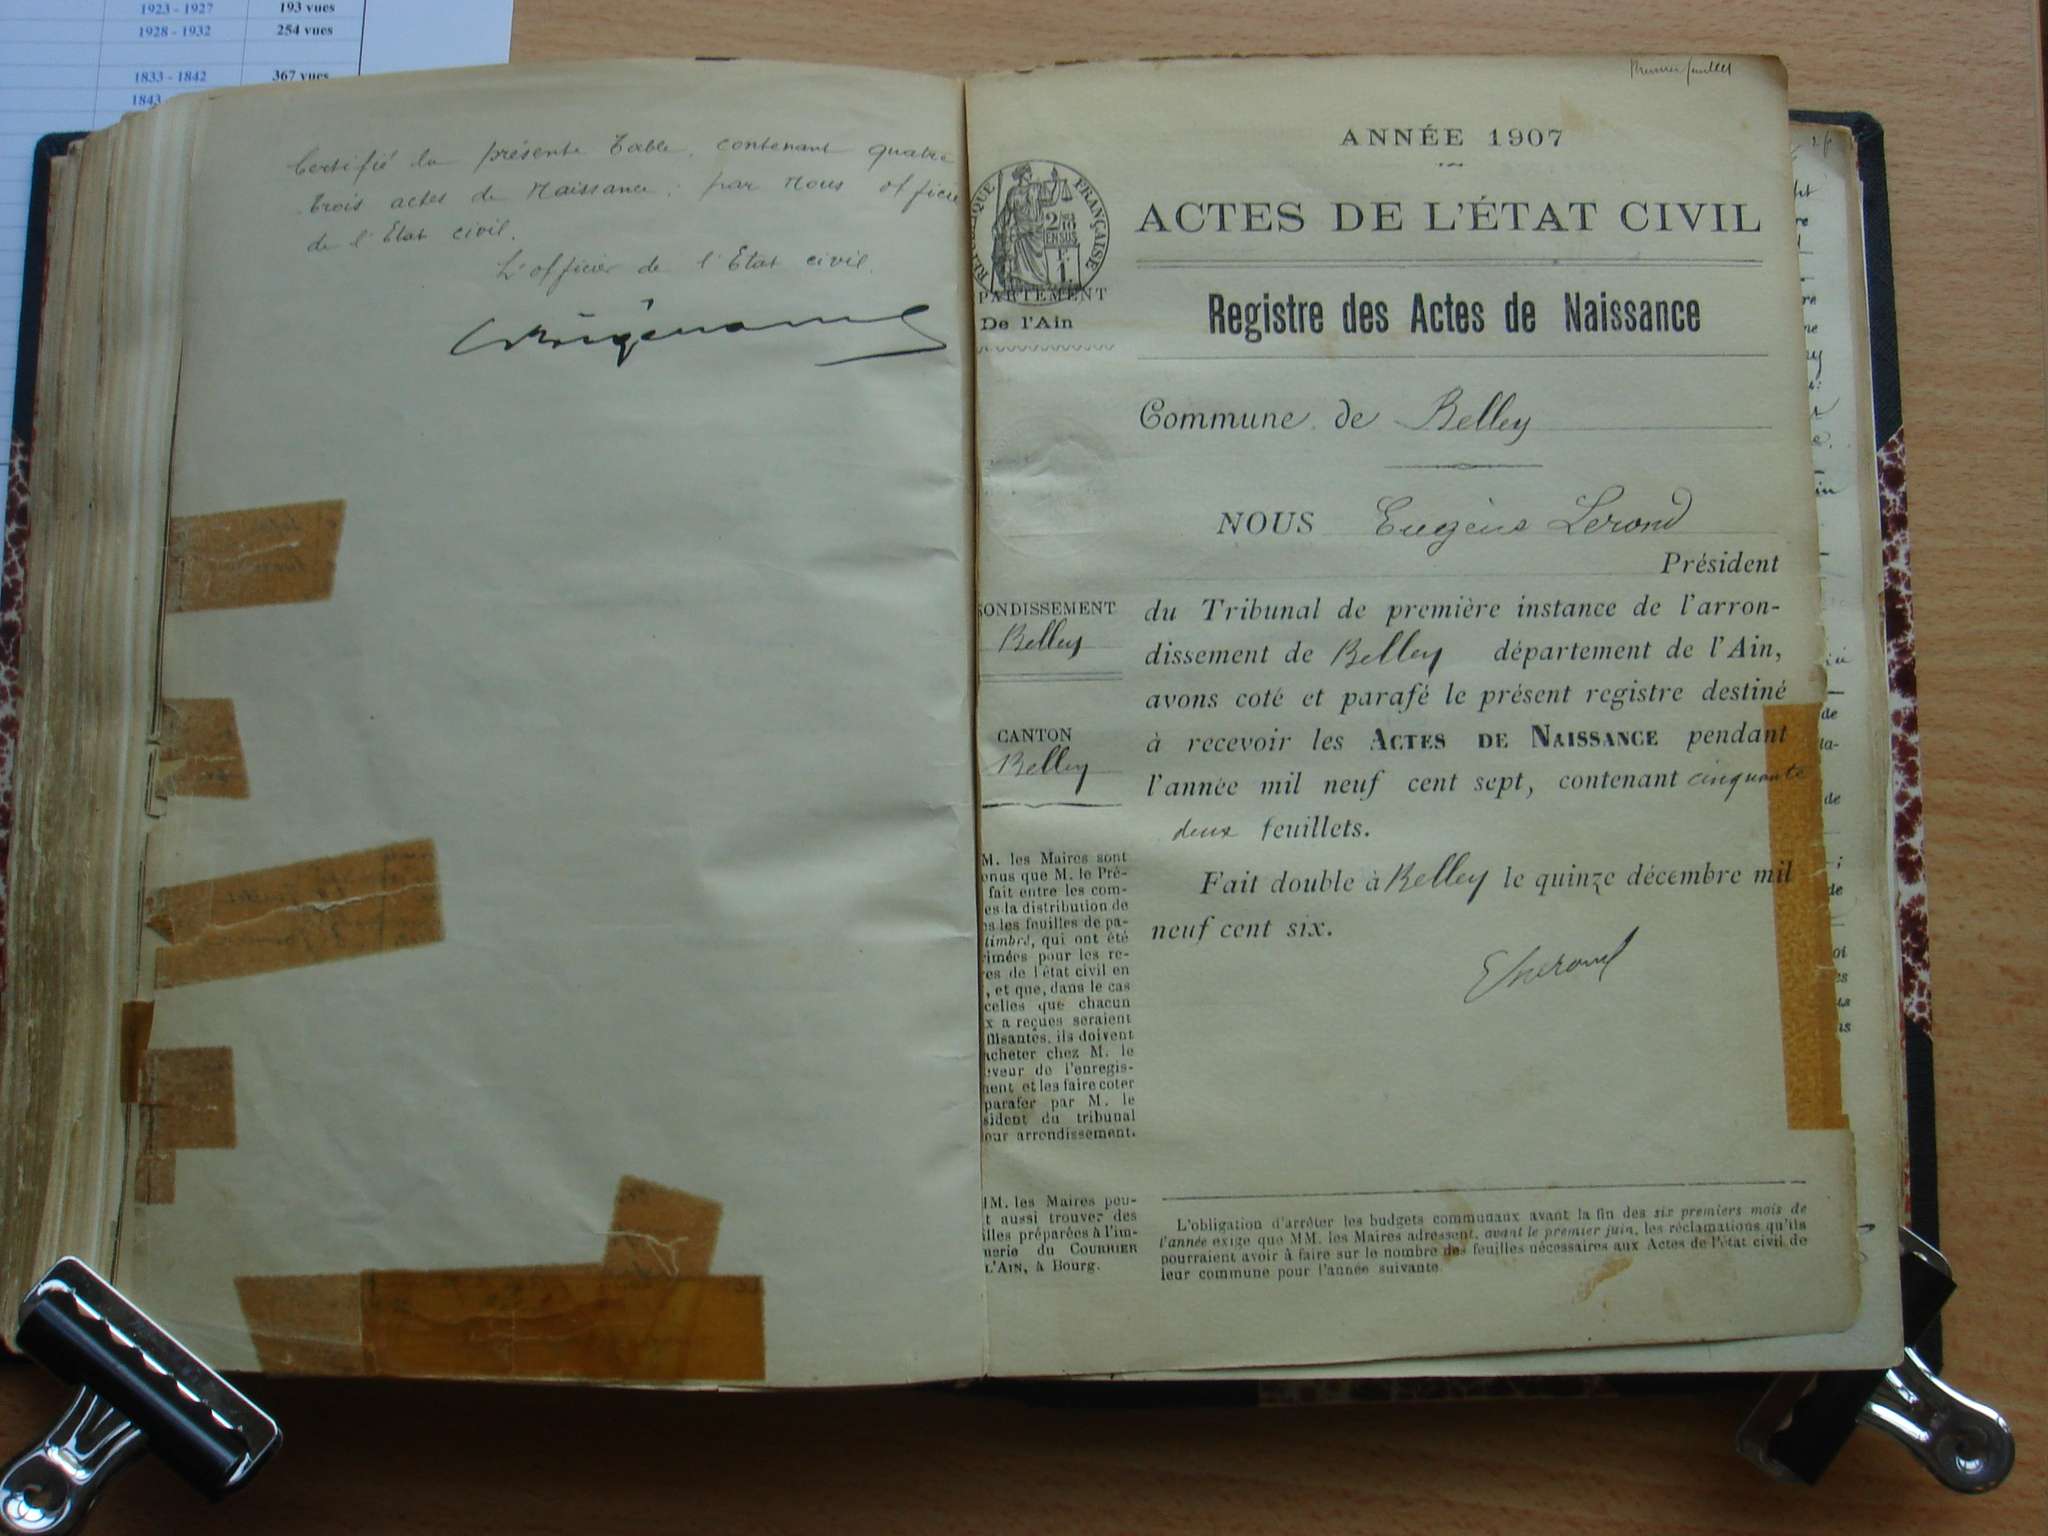 1923 - 1927 193 vues
1928 - 1932 254 vues
1833 - 1842 367 vues
1843
Certifié la présente Table, contenant quatre
trois actes de Naissance, par Nous officier
de l'Etat civil.
L'officier de l'Etat civil.
Premier feuillet
ANNÉE 1907
ACTES DE L'ÉTAT CIVIL
FRANÇAISE
PARTEMENT
De l'Ain
Registre des Actes de Naissance
Commune de Belley
NOUS Eugène Lerond
Président
du Tribunal de première instance de l'arron-
dissement de Belley département de l'Ain,
avons coté et parafé le présent registre destiné
à recevoir les ACTES DE NAISSANCE pendant
l'année mil neuf cent sept, contenant cinquante
deux feuillets.
Fait double à Belley le quinze décembre mil
neuf cent six.
ELerond
ONDISSEMENT
Belley
CANTON
Belley
M. les Maires sont
enus que M. le Pré-
fait entre les com-
es la distribution de
es les feuilles de pa-
timbré, qui ont été
rimées pour les re-
es de l'état civil en
, et que, dans le cas
celles que chacun
x a reçues seraient
ffisantes, ils doivent
acheter chez M. le
eveur de l'enregis-
ment et les faire coter
parafer par M. le
sident du tribunal
eur arrondissement.
M. les Maires peu-
t aussi trouver des
illes préparées à l'im-
merie du COURRIER
L'AIN, à Bourg.
L'obligation d'arrêter les budgets communaux avant la fin des six premiers mois de
l'année exige que MM. les Maires adressent, avant le premier juin, les réclamations qu'ils
pourraient avoir à faire sur le nombre des feuilles nécessaires aux Actes de l'état civil de
leur commune pour l'année suivante.